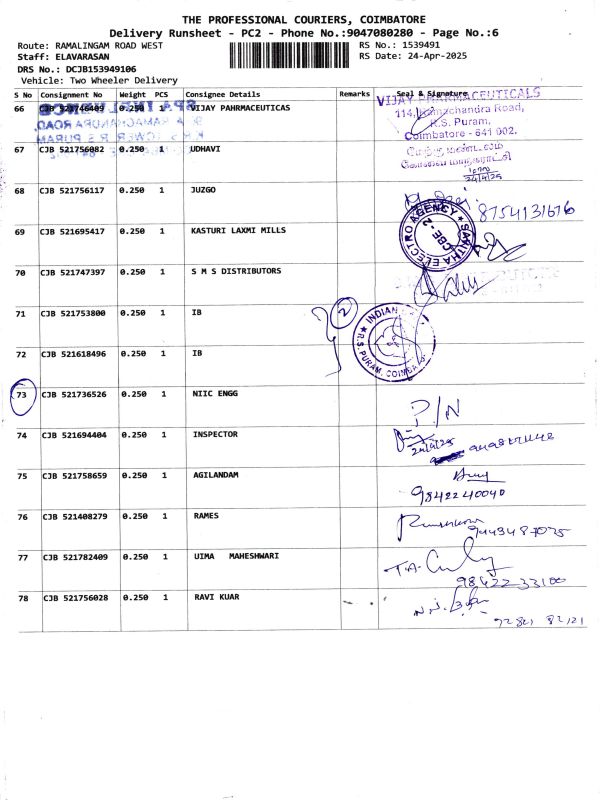 THE PROFESSIONAL COURIERS, COIMBATORE
Delivery Runsheet - PC2 - Phone No.:9047080280 - Page No.:6
Route: RAMALINGAM ROAD WEST
RS No.: 1539491
Staff: ELAVARASAN
RS Date: 24-Apr-2025
DRS No.: DCJB153949106
Vehicle: Two Wheeler Delivery
S No Consignment No Weight PCS Consignee Details Remarks Seal & Signature
66 CJB 0.250 1 VIJAY PAHRMACEUTICAS
VIJAY PHARMACEUTICALS
114, Ramachandra Road,
R.S. Puram,
Coimbatore - 641 002.
67 CJB 521756082 0.250 1 UDHAVI
24/4/25
68 CJB 521756117 0.250 1 JUZGO
8754131676
69 CJB 521695417 0.250 1 KASTURI LAXMI MILLS
ELECTRO AGENCY
CBE-2
70 CJB 521747397 0.250 1 S M S DISTRIBUTORS
71 CJB 521753800 0.250 1 IB
2
INDIAN
R.S. PURAM, COIMBA
72 CJB 521618496 0.250 1 IB
73 CJB 521736526 0.250 1 NIIC ENGG
P/N
74 CJB 521694404 0.250 1 INSPECTOR
24/4/25
75 CJB 521758659 0.250 1 AGILANDAM
9842240040
76 CJB 521408279 0.250 1 RAMES
77 CJB 521782409 0.250 1 UIMA MAHESHWARI
T.A.
98422 33100
78 CJB 521756028 0.250 1 RAVI KUAR